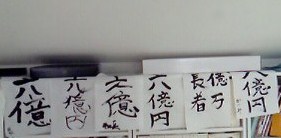 六億
六億円
六億
六億円
億万
長者
六億円